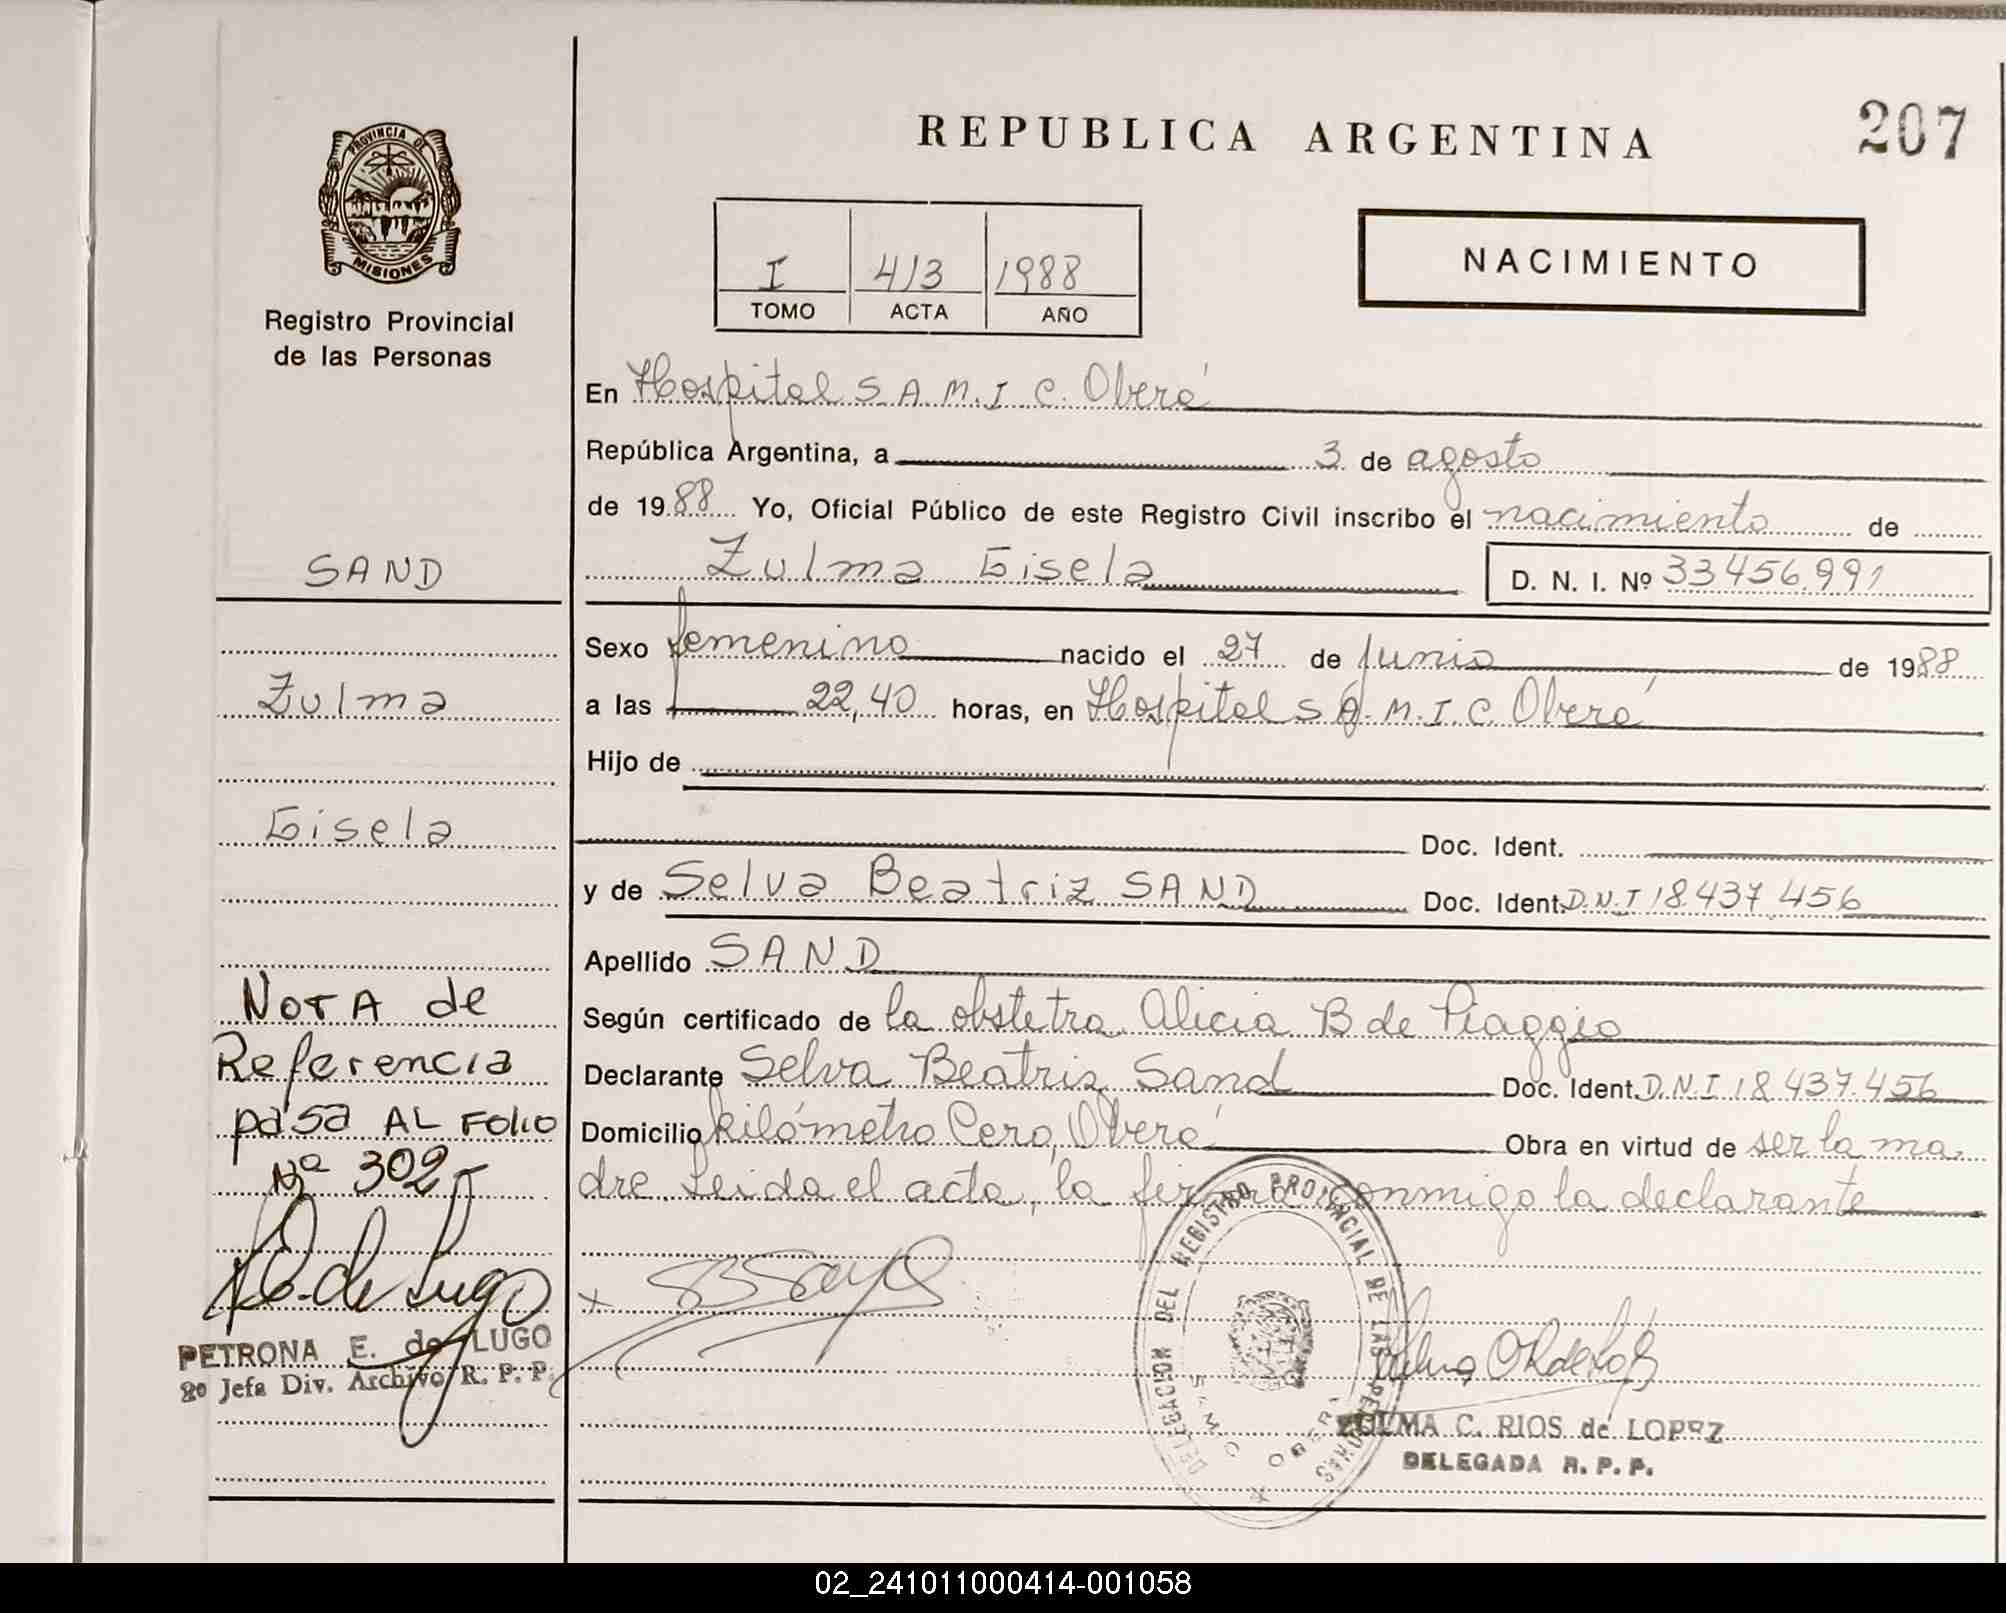 REPUBLICA ARGENTINA
207
PROVINCIA DE
MISIONES
Registro Provincial
de las Personas
I 413 1988
TOMO ACTA AÑO
NACIMIENTO
En Hospital S.A.M.I.C. Oberá
República Argentina, a 3 de agosto
de 1988 Yo, Oficial Público de este Registro Civil inscribo el nacimiento de
Zulma Gisela D. N. I. Nº 33456.991
Sexo femenino nacido el 27 de junio de 1988
a las 22,40 horas, en Hospital S.A.M.I.C. Oberá
Hijo de
Doc. Ident.
y de Selva Beatriz SAND Doc. Ident. D.N.I 18.437.456
Apellido SAND
Según certificado de la obstetra Alicia B de Piaggio
Declarante Selva Beatriz Sand Doc. Ident. D.N.I 18.437.456
Domicilio kilómetro Cero, Oberá Obra en virtud de ser la ma
dre. Leida el acta, la firma conmigo la declarante
SAND
Zulma
Gisela
NOTA de
Referencia
pasa AL FOLIO
Nº 302
PETRONA E. de LUGO
2º Jefa Div. Archivo R. P. P.
DELEGACION DEL REGISTRO PROVINCIAL DE LAS PERSONAS
OBERA
ZULMA C. RIOS de LOPEZ
DELEGADA R. P. P.
02_241011000414-001058